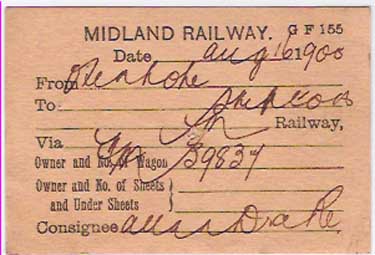 MIDLAND RAILWAY. G F 155
Date Aug 16 1900
From
To
Railway,
Via
Owner and No. of Wagon 39837
Owner and No. of Sheets
and Under Sheets
Consignee Allan Drake